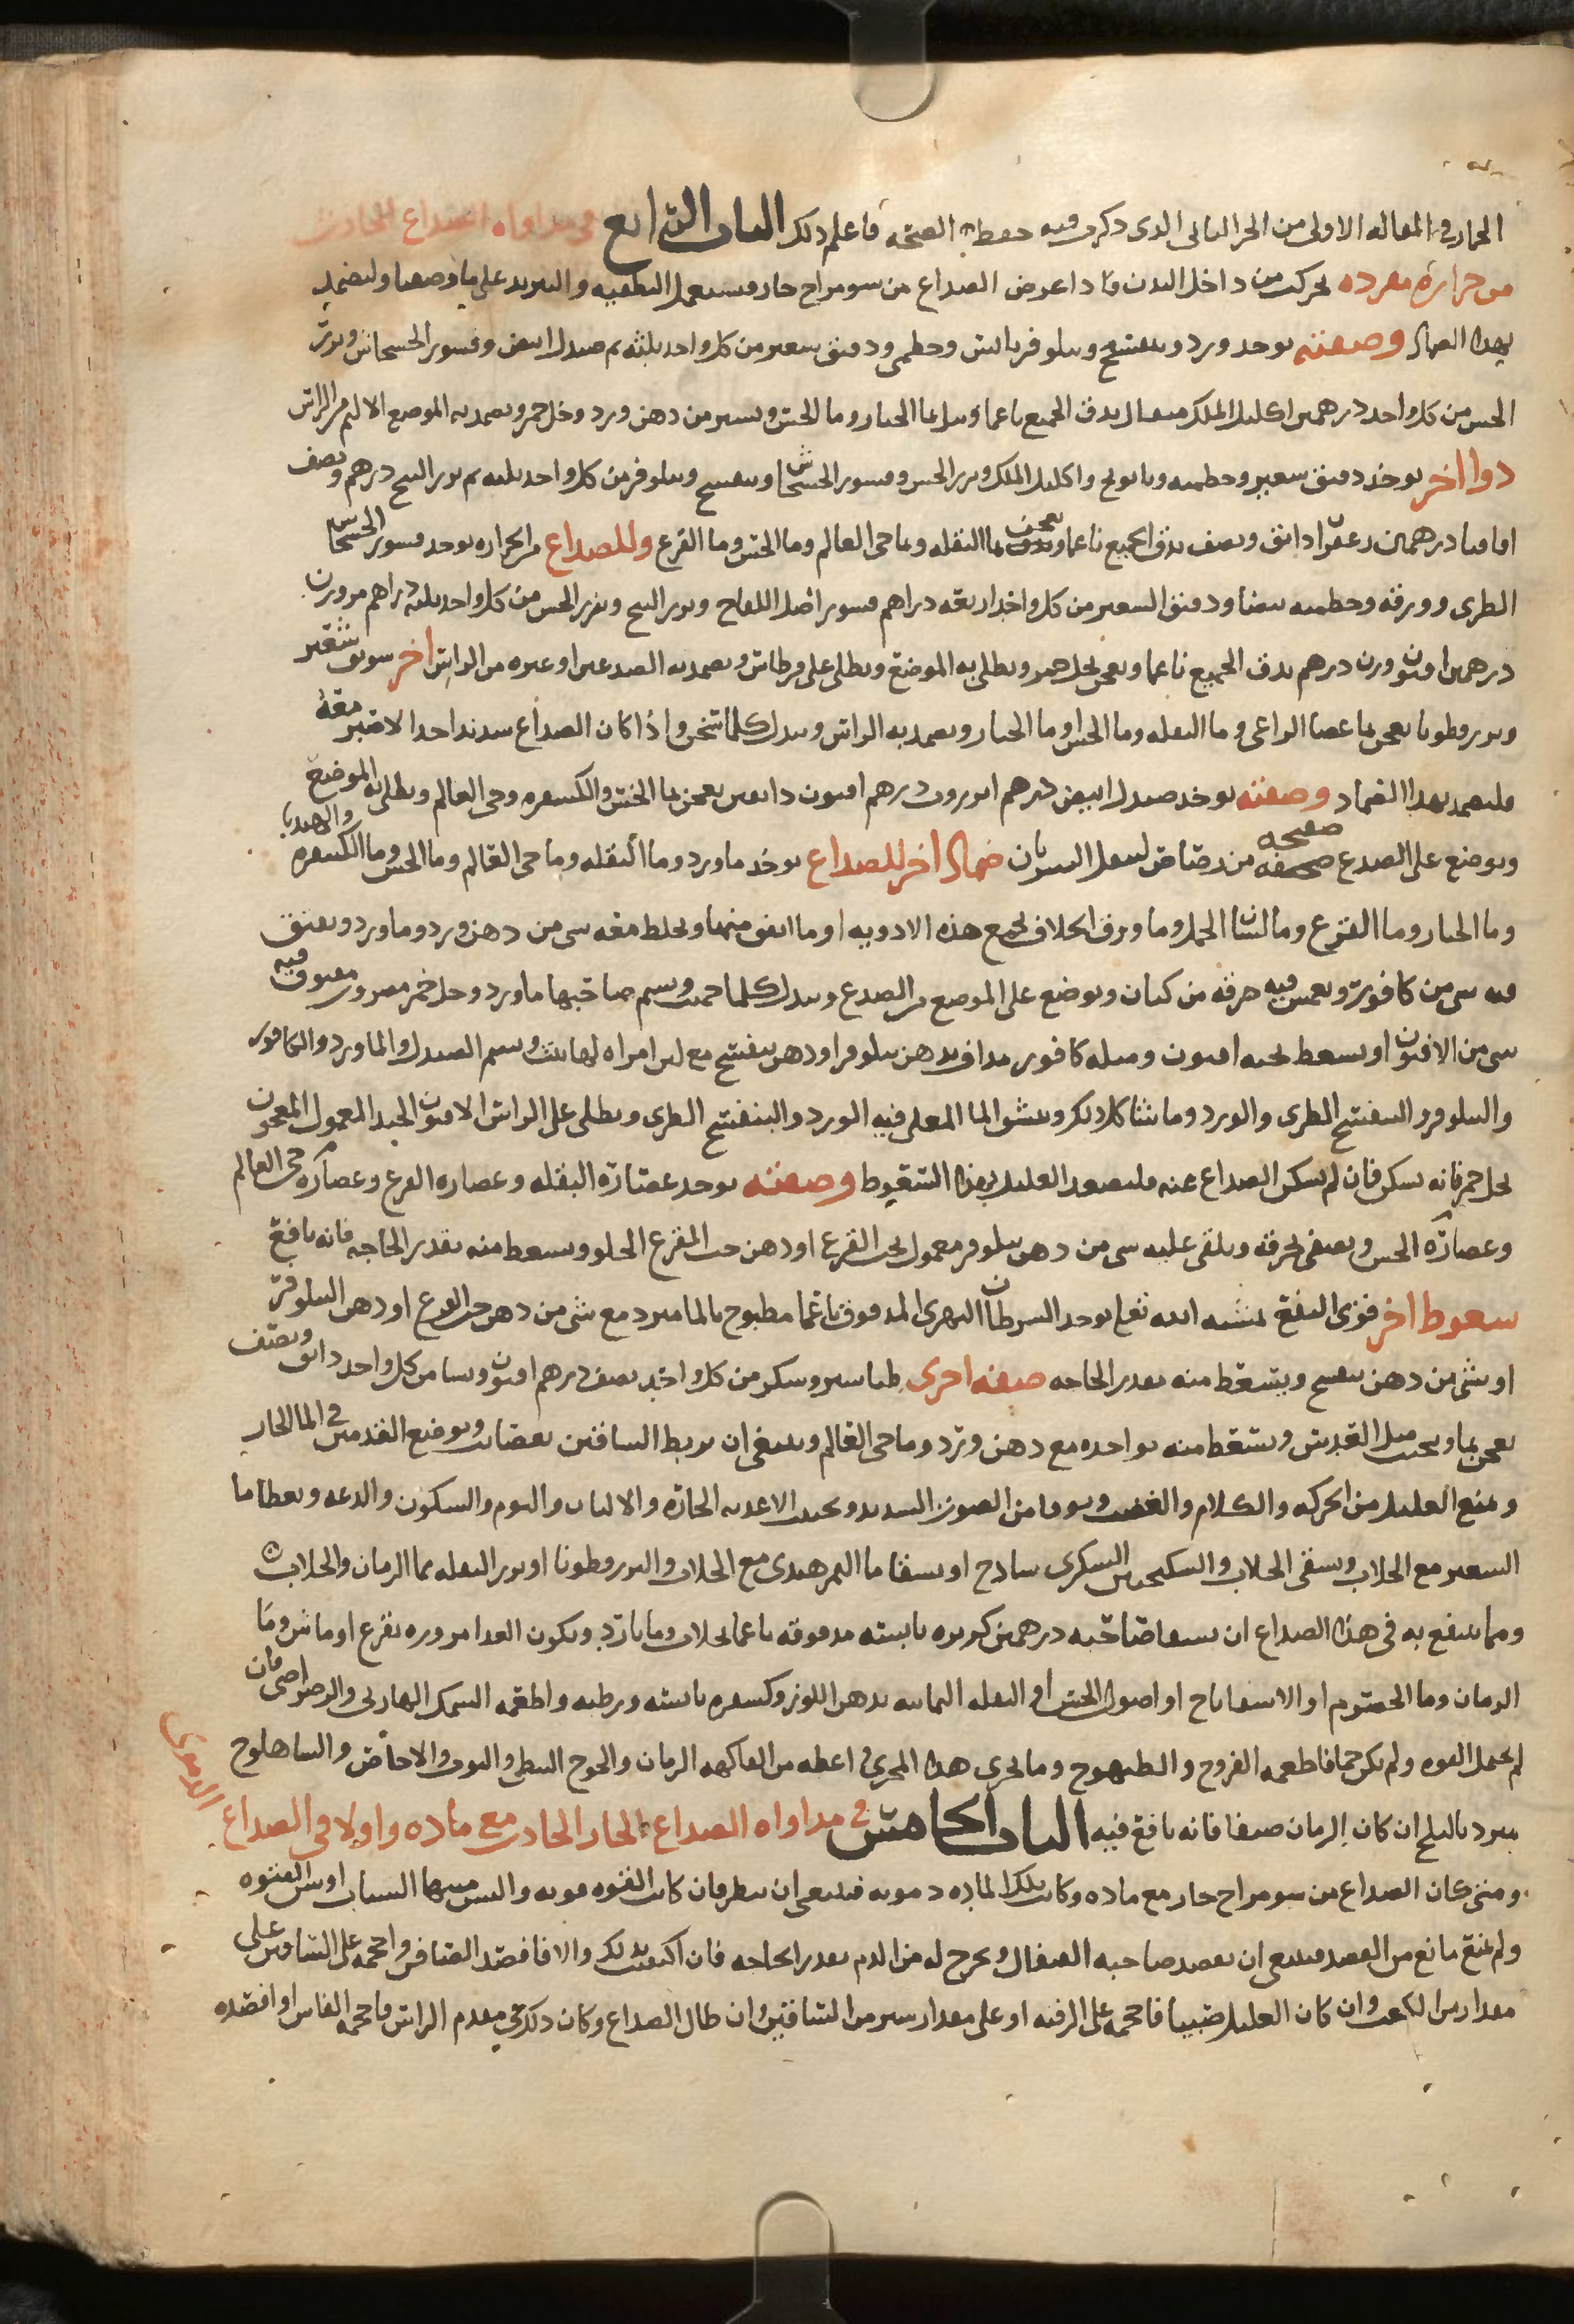 الخمار في المقاله الاولى من الجز الثانى الدى دكرت فيه حفظ الصحه فاعلم دلك الباب الرابع في مداواه الصداع الحادث
من حراره مفرده تحركت من داخل البدن فادا عرض الصداع من سو مزاج حار فيستعمل التطفيه والتبريد على ما وصفنا وليضمد
بهدا الضماد وصفته يوخد ورد وبنفسج ونيلوفر يابس وخطمى ودقيق شعير من كل واحد ثلثه صندل ابيض وقشور الخشخاش وبزر
الخس من كل واحد درهمين اكليل الملك مثقال يدق الجميع ناعما ويبل بما الخيار وما الخس ويسير من دهن ورد وخل خمر ويضمد به الموضع الالم من الراس
دوا اخر يوخد دقيق شعير وخطميه وبابونج واكليل الملك وبزر الخس وقشور الخشخاش وبنفسج ونيلوفر من كل واحد ثلثه بزر البنج درهم ونصف
اقاقيا درهمين زعفران دانق ونصف يدق الجميع ناعما ويعجن بما البقله وما حى العالم وما الخس وما القرع وللصداع من الحراره يوخد قشور الخشخاش
الطرى وورقه وخطميه بيضا ودقيق الشعير من كل واحد اربعه دراهم قشور اصل اللفاح وبزر البنج وبزر الخس من كل واحد ثلثه دراهم مر وزن
درهمين افيون وزن درهم يدق الجميع ناعما ويعجن بخل خمر ويطلى به الموضع ويطلى على قرطاس ويضمد به الصدغين او غيره من الراس اخر سويق شعير
وبزر قطونا يعجن بما عصا الراعى وما البقله وما الخس او ما الخيار ويضمد به الراس ويبدل كلما سخن واذا كان الصداع شديدا حدا لا ضبر معه
فليضمد بهدا الضماد وصفته يوخد صندل ابيض درهم افيون دانقين يعجن بما الخس والكسفره وحى العالم ويطلى به الموضع
ويوضع على الصدغ صفيحه من رصاص ضماد اخر للصداع يوخد ماورد وما البقله وما حى العالم وما الخس وما الكسفره والهندبا
وما الخيار وما القرع وما لسان الحمل وما ورق الخلاف يجمع هذه الادويه او ما اتفق منها ويخلط معه شى من دهن ورد وماورد ويفتق
فيه شى من كافور ويغمس فيه خرقه من كتان ويوضع على الموضع من الصدغ ويبدل كلما حميت ويشم صاحبها ماورد وخل خمر ممزوج مفتوق فيه
شى من الافيون او يسعط بحبه افيون ومثله كافور مداف بدهن نيلوفر او دهن بنفسج مع لبن امراه لها بنت ويشم الصندل والماورد والكافور
والنيلوفر والبنفسج الطرى والورد وما شاكل دلك وينشق الما المغلى فيه الورد والبنفسج الطرى ويطلى على الراس الافيون الجيد المعمول المعجون
بخل خمر فانه يسكن فان لم يسكن الصداع عنه فليسعط العليل بهذا السعوط وصفته يوخد عصاره البقله وعصاره القرع وعصاره حى العالم
وعصاره الخس ويصفى بخرقه ويلقى عليه شى من دهن نيلوفر معمول بحب القرع او دهن حب القرع الحلو ويسعط منه بقدر الحاجه فانه نافع
سعوط اخر قوى النفع بمشيه الله تعلى يوخد السرطان النهرى المدقوق ناعما مطبوخ بالما مبرد مع شى من دهن حب القرع او دهن النيلوفر
او شى من دهن بنفسج ويسعط منه بقدر الحاجه صفه اخرى طباشير وسكر من كل واحد نصف درهم افيون من كل واحد دانق ونصف
يعجن بما ويحبب مثل العدس ويسعط منه بواحده مع دهن ورد وما حى العالم وينبغى ان يربط الساقين بعصايب ويوضع القدمين فى الما الحار
ويمنع العليل من الحركه والكلام والغضب ويوقا من الصوت الشديد ويجنب الاغديه الحاره والالبان والنوم والسكون والدعه ويعطا ما
الشعير مع الجلاب ويسقى الجلاب والسكنجبين السكرى سادج او يسقا ما التمر هندى مع الجلاب والبزر قطونا او بزر البقله بما الرمان والجلاب
ومما ينتفع به فى هذا الصداع ان يسقا صاحبه درهمين كزبره يابسه مدقوقه ناعما بجلاب وما بارد ويكون الغدا مزوره بقرع او ماش وما
الرمان وما الحصرم او الاسفاناخ او اصول الخس او البقله اليمانيه بدهن اللوز وكسفره يابسه ورطبه واطعمه السمك الهازلى والرضراضى فان
لم تحمل القوه ولم تكن حما فاطعمه الفروج والطيهوج وما يجرى هدا المجرى اعطه من الفاكهه الرمان والخوخ والتوت والاجاص والشاهلوج
مبرد بالثلج ان كان الزمان صيفا فانه نافع فيه الباب الخامس فى مداواه الصداع الحار الحادث مع ماده واولا فى الصداع
الدموى
ومتى كان الصداع من سو مزاج حار مع ماده وكانت تلك الماده دمويه فينبغى ان ينظر فان كانت القوه قويه والسن سن الشباب او سن الفتوه
ولم يمنع مانع من الفصد فينبغى ان يفصد صاحبه القيفال ويخرج له من الدم بقدر الحاجه فان اكتفيت بدلك والا فافصد الصافن واحجمه على الساقين على
مقدار من الكعب وان كان العليل صبيا فاحجمه على الرقبه او على مقدار شبر من الساقين وان طال الصداع وكان دلك فى مقدم الراس فاحجمه الفاس او افصده